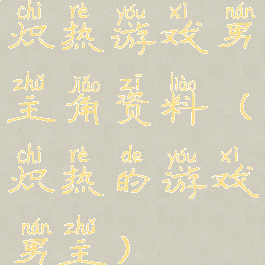 chì rè yóu xì nán
炽热游戏男
zhǔ jiǎo zī liào
主角资料（
chì rè de yóu xì
炽热的游戏
nán zhǔ
男主）